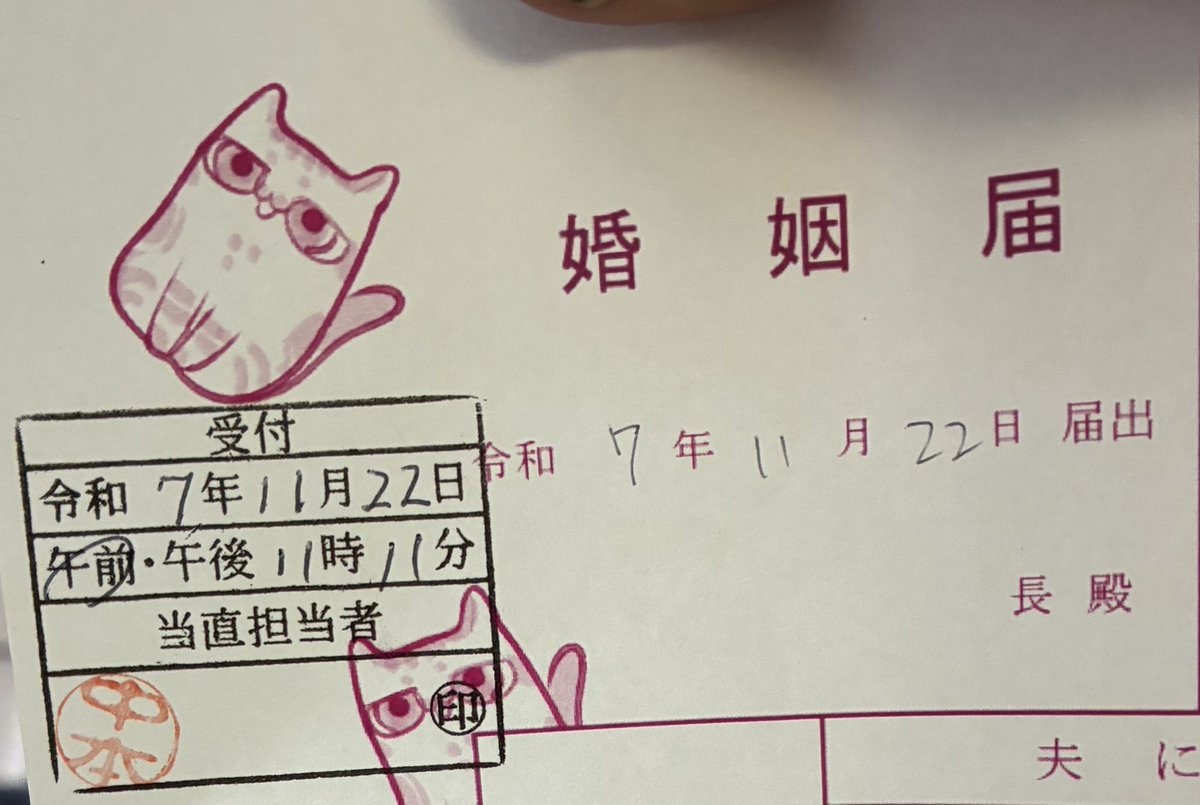 婚姻届
受付
令和 7年11月22日
午前・午後 11時11分
当直担当者
印
中本
令和 7年 11月 22日 届出
長 殿
夫 に